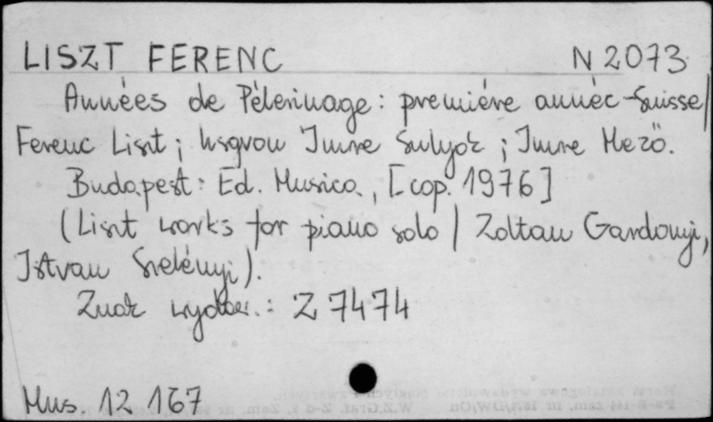 LISZT FERENC N 2073
Années de Pèlerinage: première année-Suisse/
Ferenc Liszt; Imre Sulyok; Imre Mező.
Budapest: Ed. Musica, [cop. 1976]
(Liszt works for piano solo / Zoltan Gardonyi,
Istvan Szelényi).
Znak wydaw.: Z 7474
Mus. 12 167